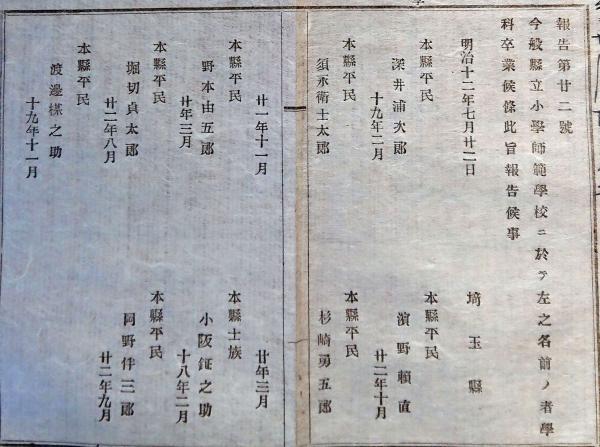 報告第廿二號
今般縣立小學師範學校ニ於テ左之名前ノ者學
科卒業候條此旨報告候事
明治十二年七月廿二日
埼玉縣
本縣平民
深井浦次郎
十九年二月
本縣平民
濵野頼直
廿二年十月
本縣平民
須永衛士太郎
廿一年十一月
本縣平民
杉崎勇五郎
廿年三月
本縣平民
野本由五郎
廿年三月
本縣士族
小阪鉦之助
十八年二月
本縣平民
堀切貞太郎
廿二年八月
本縣平民
岡野伴三郎
廿二年九月
本縣平民
渡邊楳之助
十九年十一月